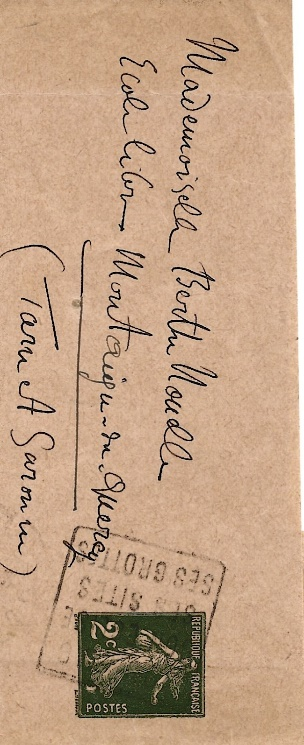 Mademoiselle Berthe
Ecole libre Montaigu-du-Quercy
(Tarn et Garonne)
SES SITES
SES GROTTES
REPUBLIQUE FRANÇAISE
2c
POSTES